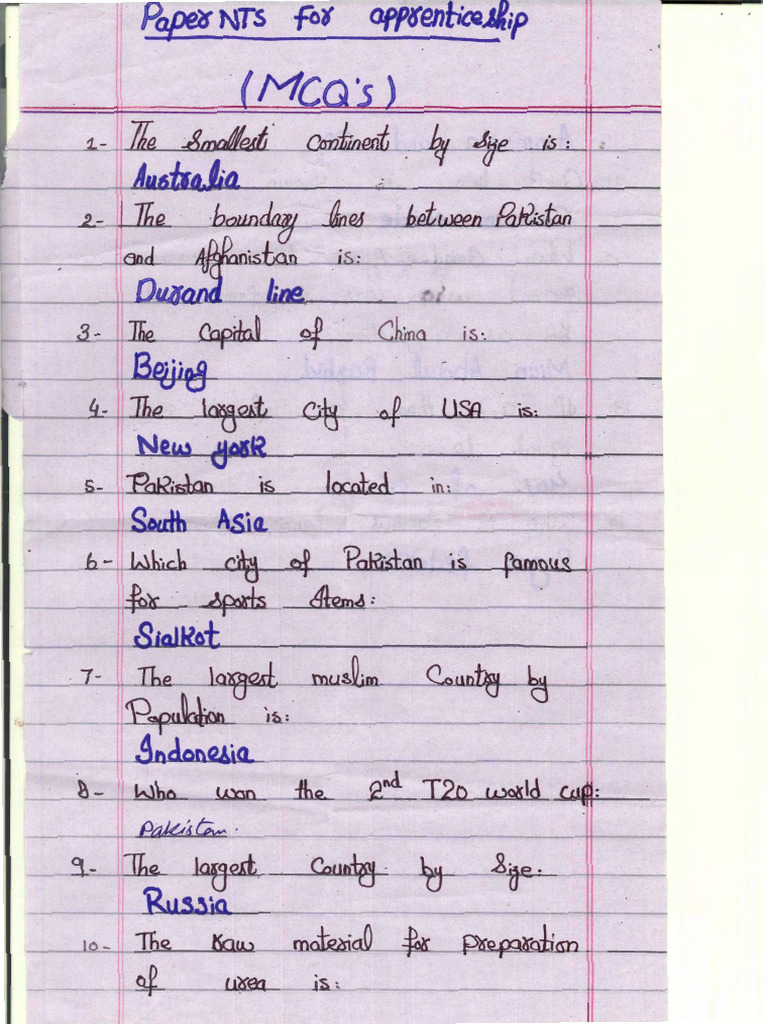 Paper NTS for apprenticeship
(MCQ's)
1- The smallest continent by size is:
Australia
2- The boundary lines between Pakistan
and Afghanistan is:
Durand line
3- The Capital of China is:
Beijing
4- The largest city of USA is:
New york
5- Pakistan is located in:
South Asia
6- Which city of Pakistan is famous
for sports Items:
Sialkot
7- The largest muslim Country by
Population is:
Indonesia
8- Who won the 2nd T20 world cup:
Pakistan.
9- The largest Country by Size.
Russia
10- The raw material for preparation
of urea is: